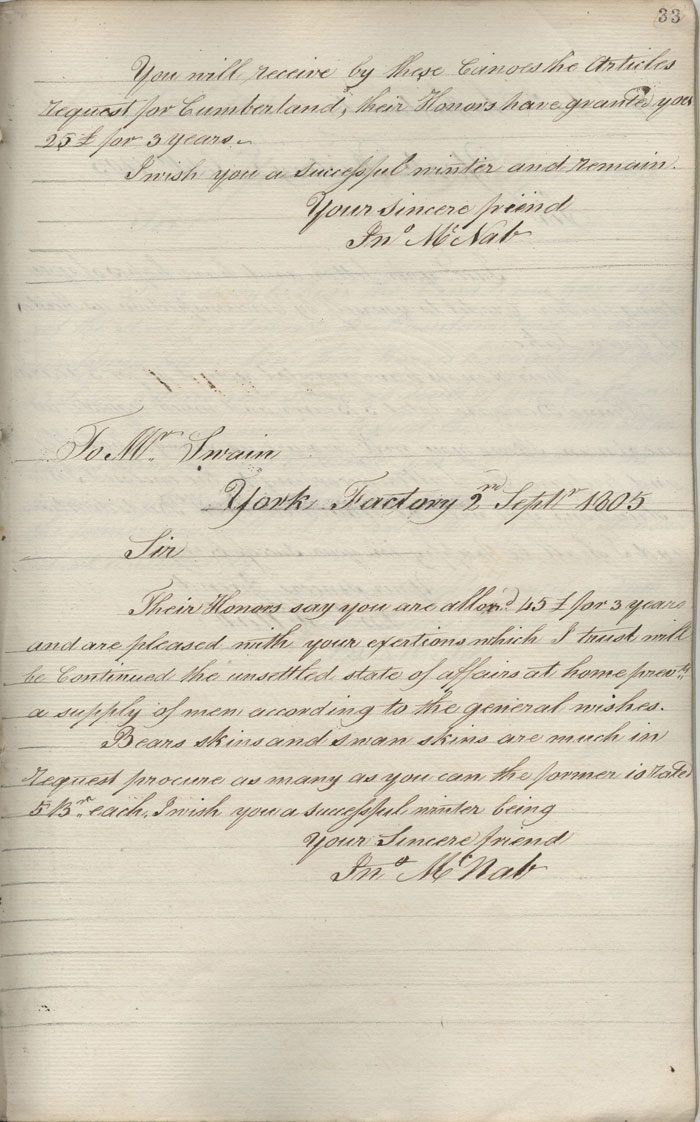 33
You will receive by these Canoes he Articles
request for Cumberland, their Honors have granted you
25 £ for 3 years.
I wish you a successful winter and remain.
Your sincere friend
Jnº Mc Nab
To Mr. Swain
York Factory 2nd Septr 1805
Sir
Their Honors say you are allow'd 45 £ for 3 years
and are pleased with your exertions which I trust will
be Continued the unsettled state of affairs at home prevts
a supply of men according to the general wishes.
Bears skins and swan skins are much in
request procure as many as you can the former is rated
5 Br. each, I wish you a successful winter being
Your Sincere friend
Jnº Mc Nab